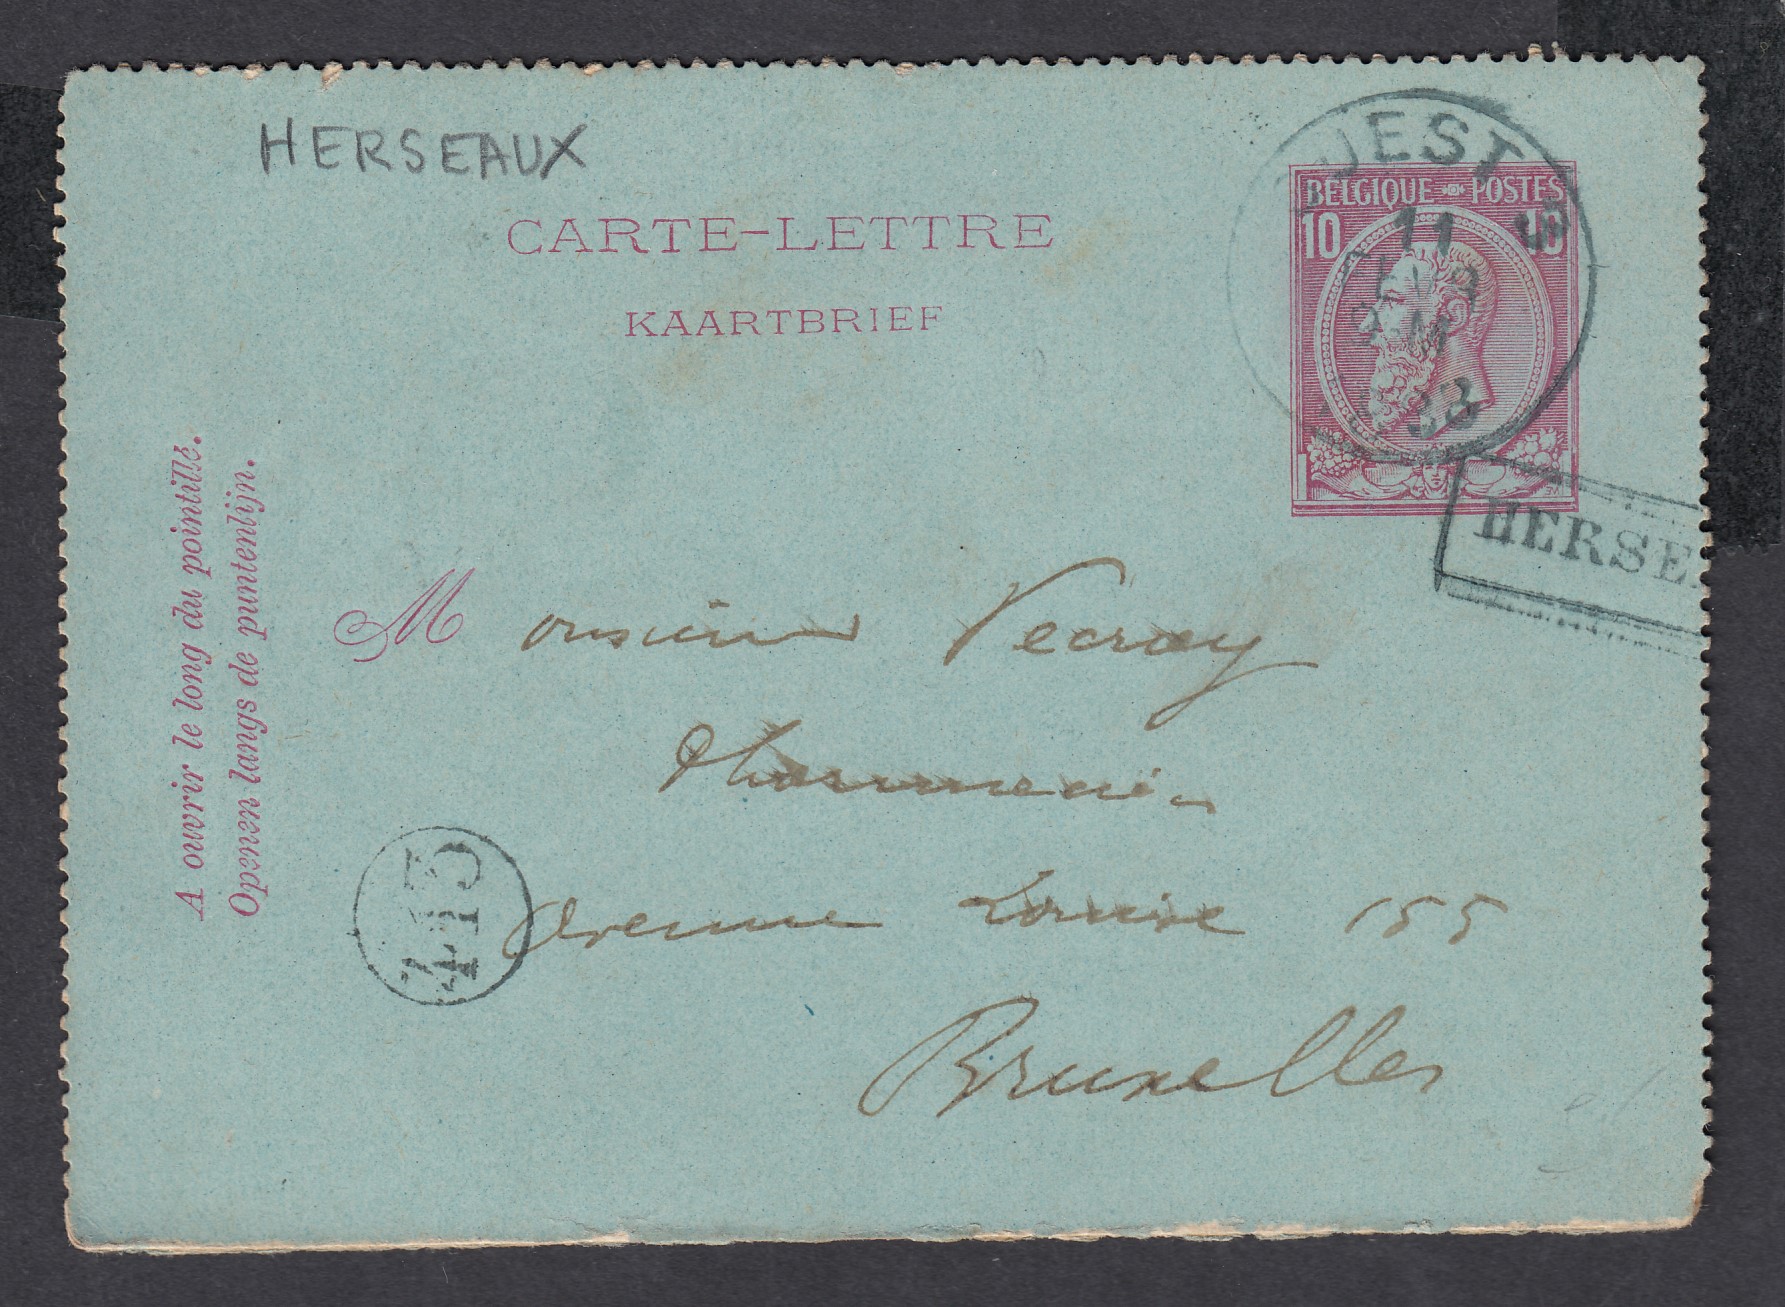 HERSEAUX
CARTE-LETTRE
KAARTBRIEF
BELGIQUE POSTES
10 10
OUEST
11
M
HERSE
A ouvrir le long du pointillé.
Openen langs de puntenlijn.
Monsieur Vecray
Pharmacien
413
Avenue Louise 155
Bruxelles